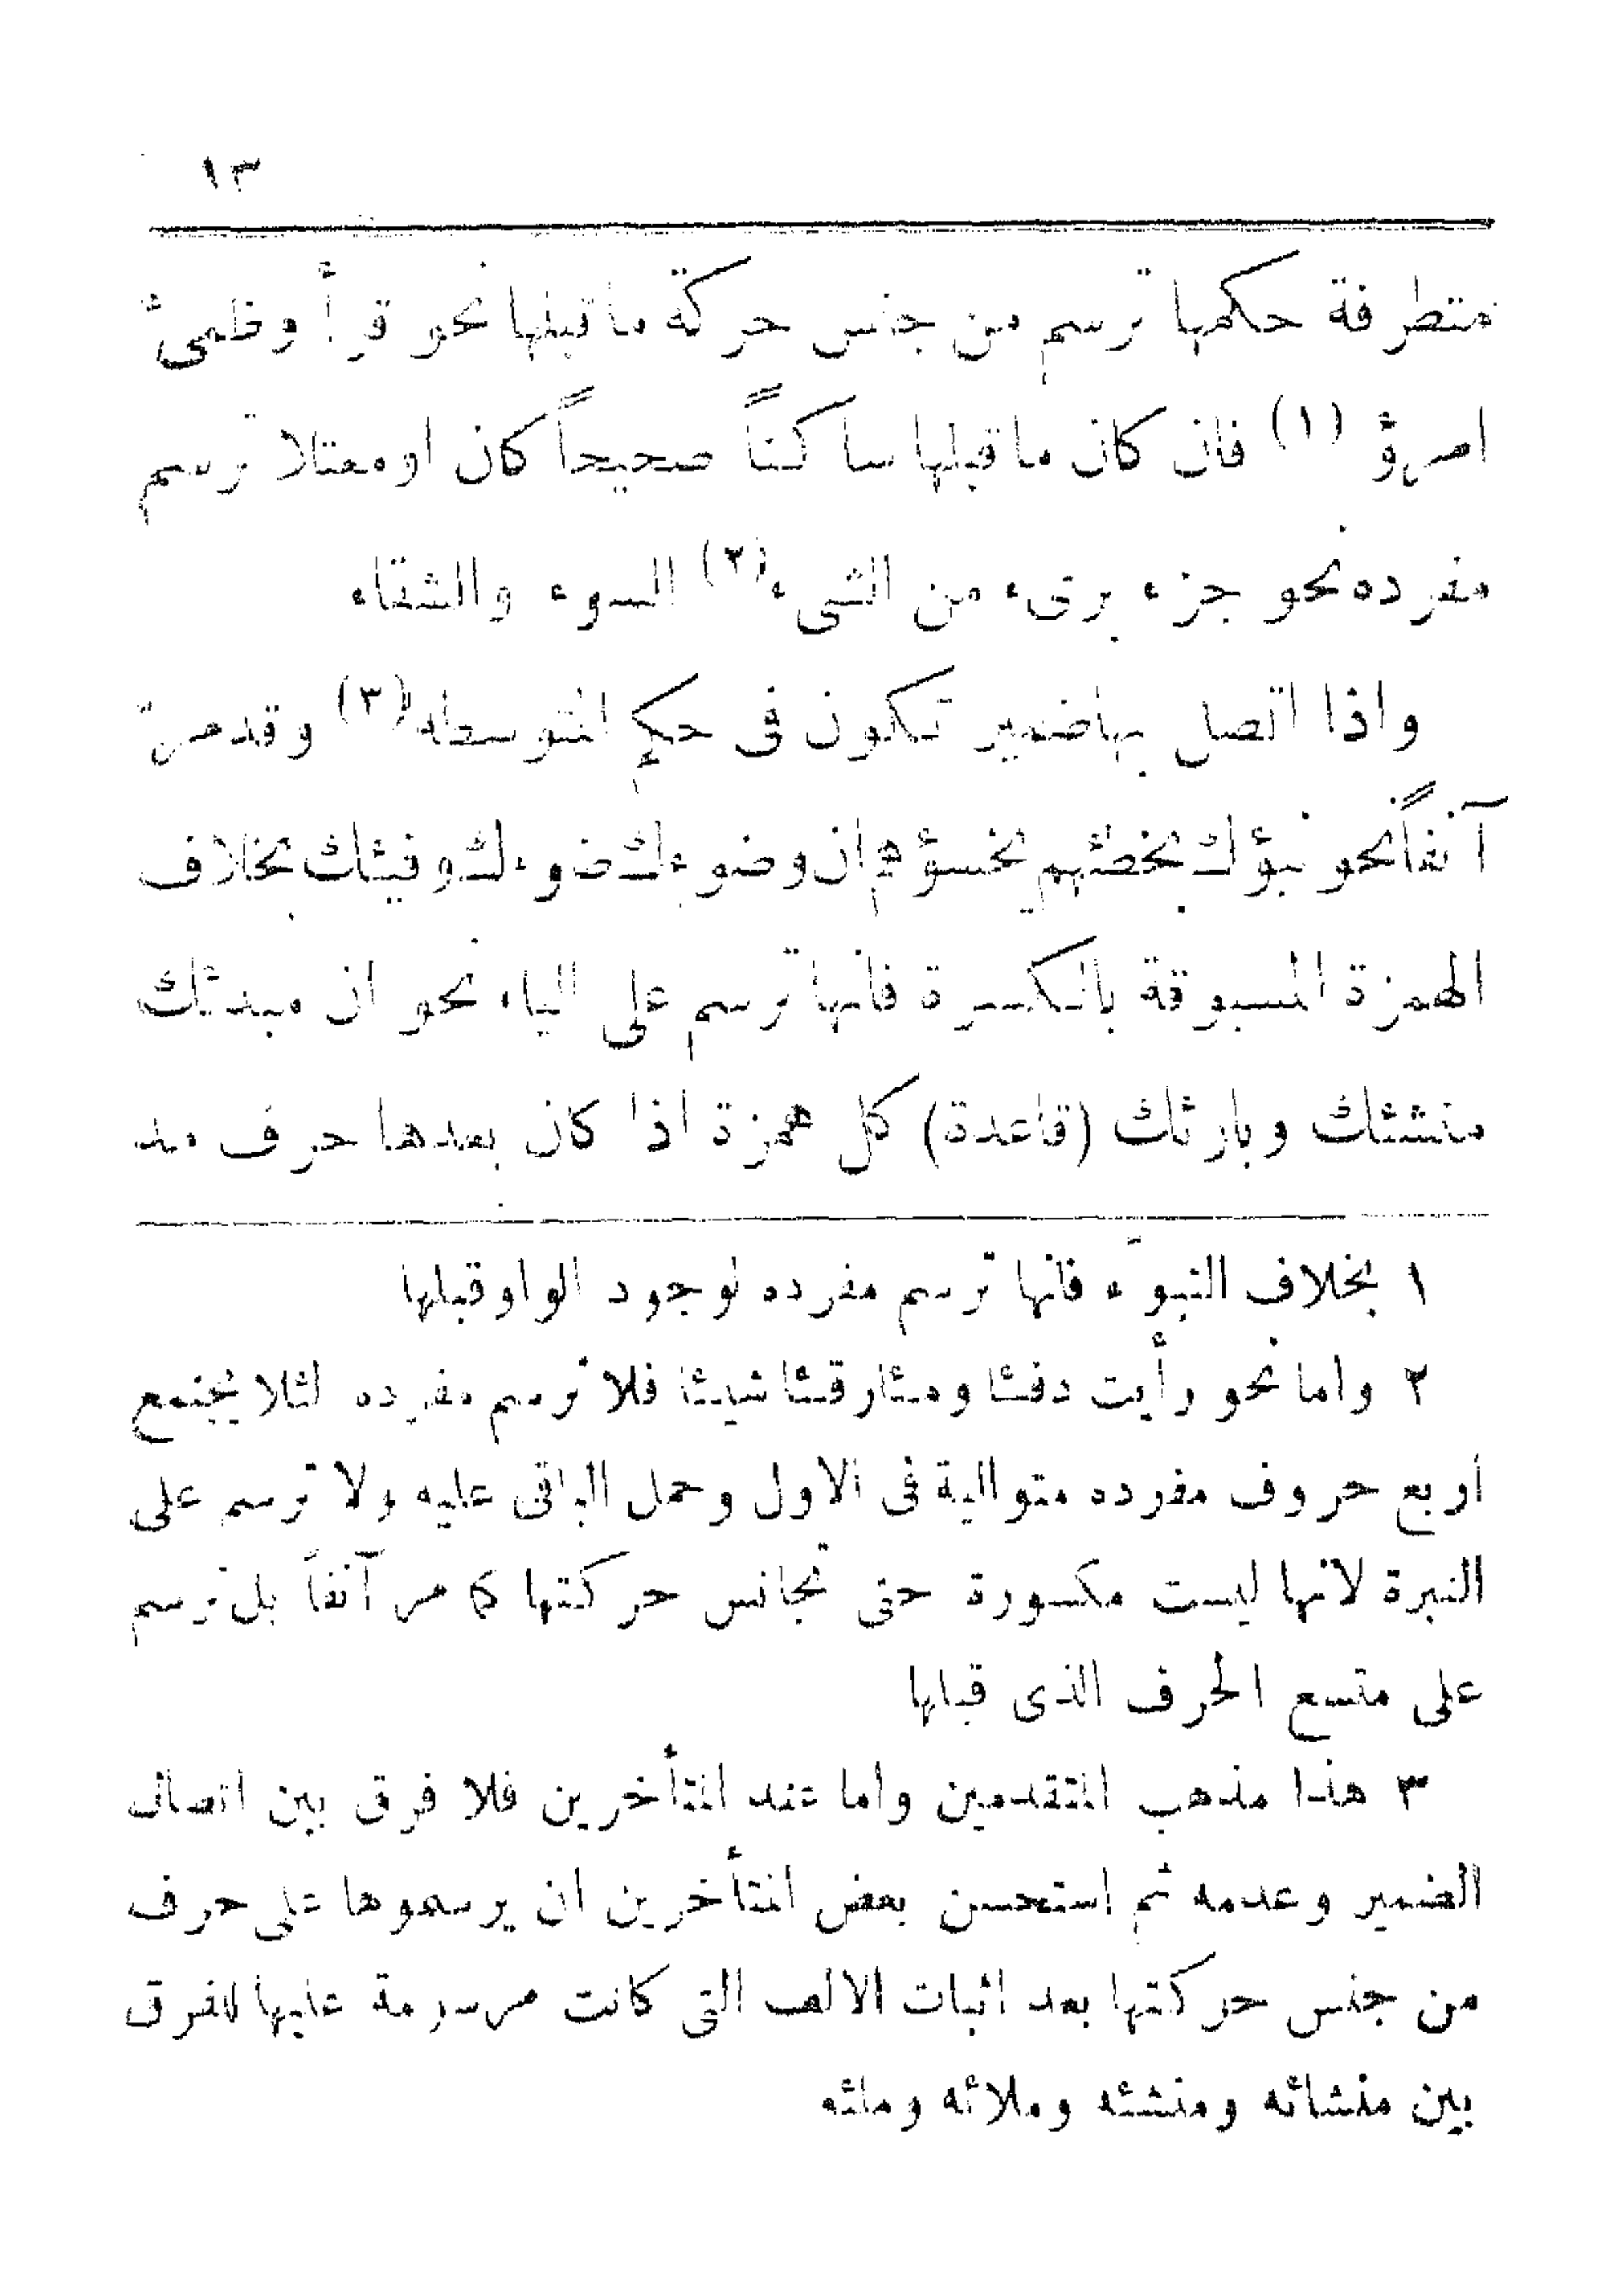 ١٣
متطرفة حكمها ترسم من جنس حركة ماقبلها نحو قرأ وظمئ
امرؤ (١) فان كان ماقبلها ساكناً صحيحاً كان اومعتلا ترسم
مفرده نحو جزء برىء من الشىء (٢) السوء والشقاء
واذا اتصل بهاضمير تكون فى حكم المتوسطه (٣) وقدمرّ
آنفاً نحو نبؤك بخطئهم يخسؤهم ان وضوءك ضوءك وفيئك بخلاف
الهمزة المسبوقة بالكسرة فانها ترسم على الياء نحو ان مبدئك
منشئك وبارئك (قاعدة) كل همزة اذا كان بعدها حرف مد
١ بخلاف التبوّء فانها ترسم مفرده لوجود الواو قبلها
٢ واما نحو رأيت دفئا ومئارقئا شيئا فلا ترسم مفرده لئلا يجتمع
اربع حروف مفرده متوالية فى الاول وحمل الباقى عليه ولا ترسم على
النبرة لانها ليست مكسورة حتى تجانس حركتها كما مر آنفاً بل ترسم
على متسع الحرف الذى قبلها
٣ هذا مذهب المتقدمين واما عند المتأخرين فلا فرق بين اتصال
الضمير وعدمه ثم استحسن بعض المتأخرين ان يرسموها على حرف
من جنس حركتها بعد اثبات الالف التى كانت مرسومة عليها للفرق
بين منشائه ومنشئه وملائه وملئه